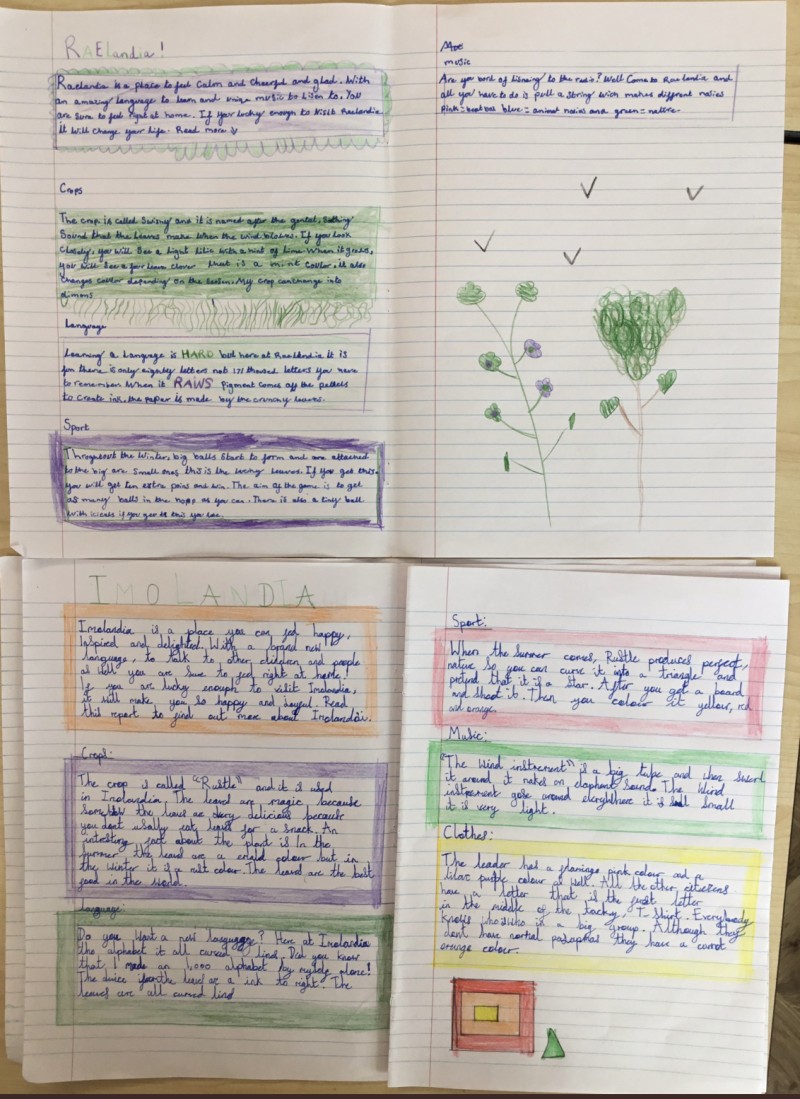 RAElandia!
Raelandia is a place to feel calm and cheerful and glad. With
an amazing language to learn and uniqe music to listen to. You
are sure to feel right at home. If your lucky enough to visit Raelandia
it will change your life. Read more
Crops
The crop is called Swishy and it is named after the gental, Suthing
Sound that the leaves make when the wind blowes. If you look
Closely, you will see a light lilic with a hint of lime. When it grows,
you will see a four leave clover that is a mint coulor, it also
changes coulor depending on the season. My crop can change into
Language
Learning a Language is HARD but here at Raelandia it is
fun there is only eighty letters not thousand letters you have
to remember. When it RAWS Pigment comes off the
to create ink, the paper is made by the crunchy leaves.
Sport
Throughout the winter, big balls start to form and are attached
to the big are small ones this is the leaves. If you get this
you will get ten extra poins and win. The aim of the game is to get
as many balls in the as you can. There is also a tiny ball
With if you get this you
music
Are you bord of lisning to the radio? Well Come to Raelandia and
all you have to do is pull a string with makes different nosies
Pink = blue = animal nosies and green = nature
IMOLANDIA
Imolandia is a place you can feel happy,
inspired and delighted. With a brand new
language, to talk to other children and people
as well you are sure to feel right at home!
If you are lucky enough to visit Imolandia,
it will make you so happy and Joyful. Read
this report to find out more about Imolandai.
Crops:
The crop is called "Rustle" and it is used
in Imolandia. The leaves are magic because
somehow the leaves are very delicious because
you dont usally eat leaves for a snack. An
intresting fact about the plant is In the
summer the leaves are a colour but in
the winter it is a rust colour. The leaves are the best
food in the world.
Language:
Do you want a new language? Here at Imolandia
the alphabet is all curved lines. Did you know
that I made an 1,000 alphabet by myself alone!
The the leaves are a ink to right. The
leaves are all curved lines
Sport:
When the summer comes, Rustle produces perfect,
nature so you can curve it into a triangle and
pretend that it is a star. After you get a board
and shoot it. Then you colour it yellow, red
and orange.
Music:
"The Wind instrement" is a big tube and when
it around it makes an elephant sound. The Wind
instrement goes around everywhere it is small
it is very light.
Clothes:
The leader has a flamingo pink colour and a
lilac purple colour as well. All the other citizens
have a letter that is the first letter
in the middle of the T-Shirt. Everybody
knows who is who in a big group. Although they
dont have normal they have a carrot
orange colour.